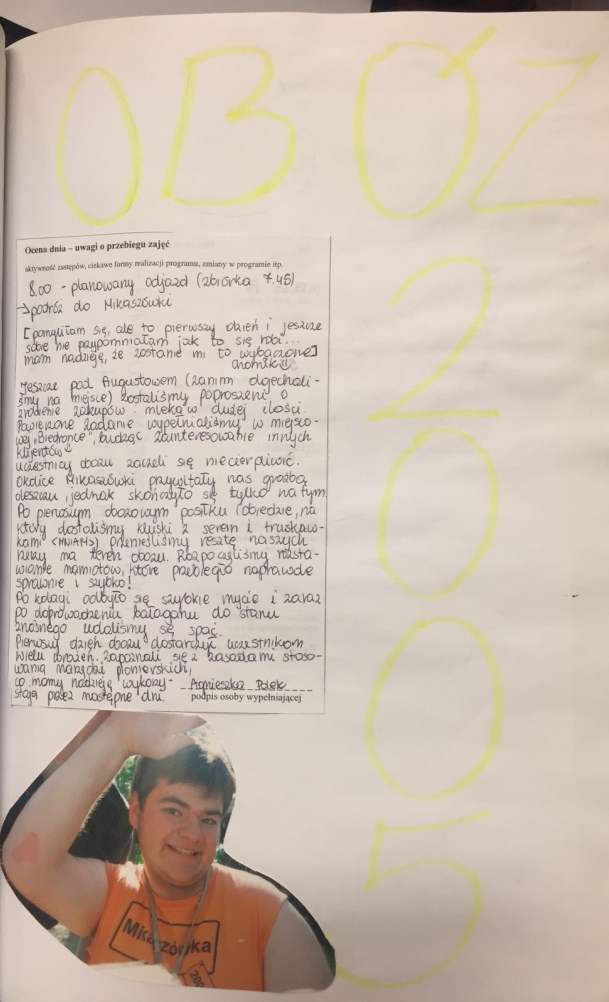 OBÓZ
2005
Ocena dnia – uwagi o przebiegu zajęć
aktywność zastępów, ciekawe formy realizacji programu, zmiany w programie itp.
8.00 - planowany odjazd (zbiórka 7.45)
→podróż do Mikaszówki
[pomyliłam się, ale to pierwszy dzień i jeszcze
sobie nie przypomniałam jak to się robi...
mam nadzieję, że zostanie mi to wybaczone]
chomik
Jeszcze pod Augustowem (zanim dojechali-
śmy na miejsce) zostaliśmy poproszeni o
zrobienie zakupów: mleka w dużej ilości.
Powierzone zadanie wypełnialiśmy w miejsco-
wej „Biedronce", budząc zainteresowanie innych
klientów
uczestnicy obozu zaczęli się niecierpliwić.
Okolice Mikaszówki przywitały nas groźbą
deszczu, jednak skończyło się tylko na tym.
Po pierwszym obozowym posiłku (obiedzie, na
który dostaliśmy kluski z serem i truskaw-
kami <MNIAM>) przenieśliśmy resztę naszych
rzeczy na teren obozu. Rozpoczęliśmy rozsta-
wianie namiotów, które przebiegło naprawdę
sprawnie i szybko!
Po kolacji odbyło się szybkie mycie i zaraz
po doprowadzeniu bałaganu do stanu
znośnego udaliśmy się spać.
Pierwszy dzień obozu dostarczył uczestnikom
wielu wrażeń. Zapoznali się z zasadami stoso-
wania narzędzi pionierskich,
co mamy nadzieję wykorzy-
stają przez następne dni.
Agnieszka
podpis osoby wypełniającej
Mikaszówka
200